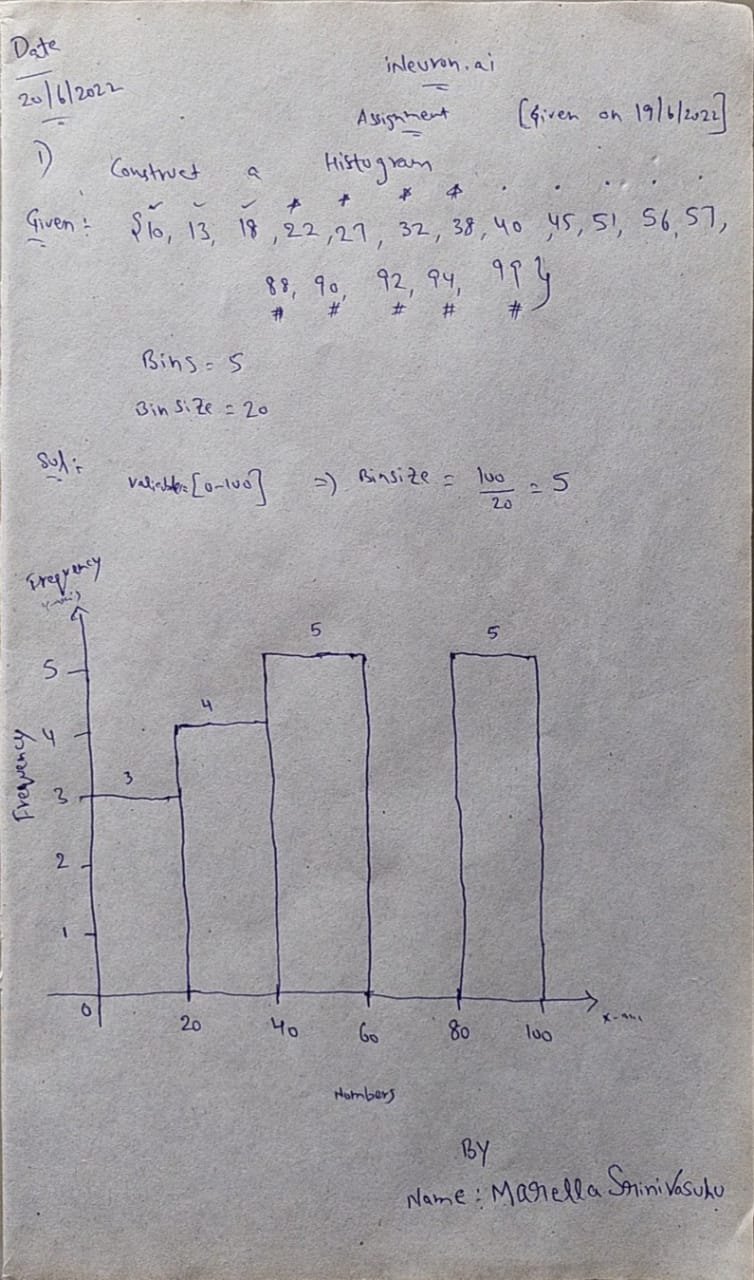 Date
20/6/2022
iNeuron.ai
Assignment [Given on 19/6/2022]
1) Construct a Histogram
Given: {10, 13, 18, 22, 27, 32, 38, 40, 45, 51, 56, 57,
88, 90, 92, 94, 99}
# # # # #
Bins = 5
Bin size = 20
Sol:
variable=[0-100] => Binsize = 100/20 = 5
Frequency
5 5
5
4
4
3
3
2
1
Frequency
0 20 40 60 80 100
Numbers
BY
Name: Marella Srinivasulu